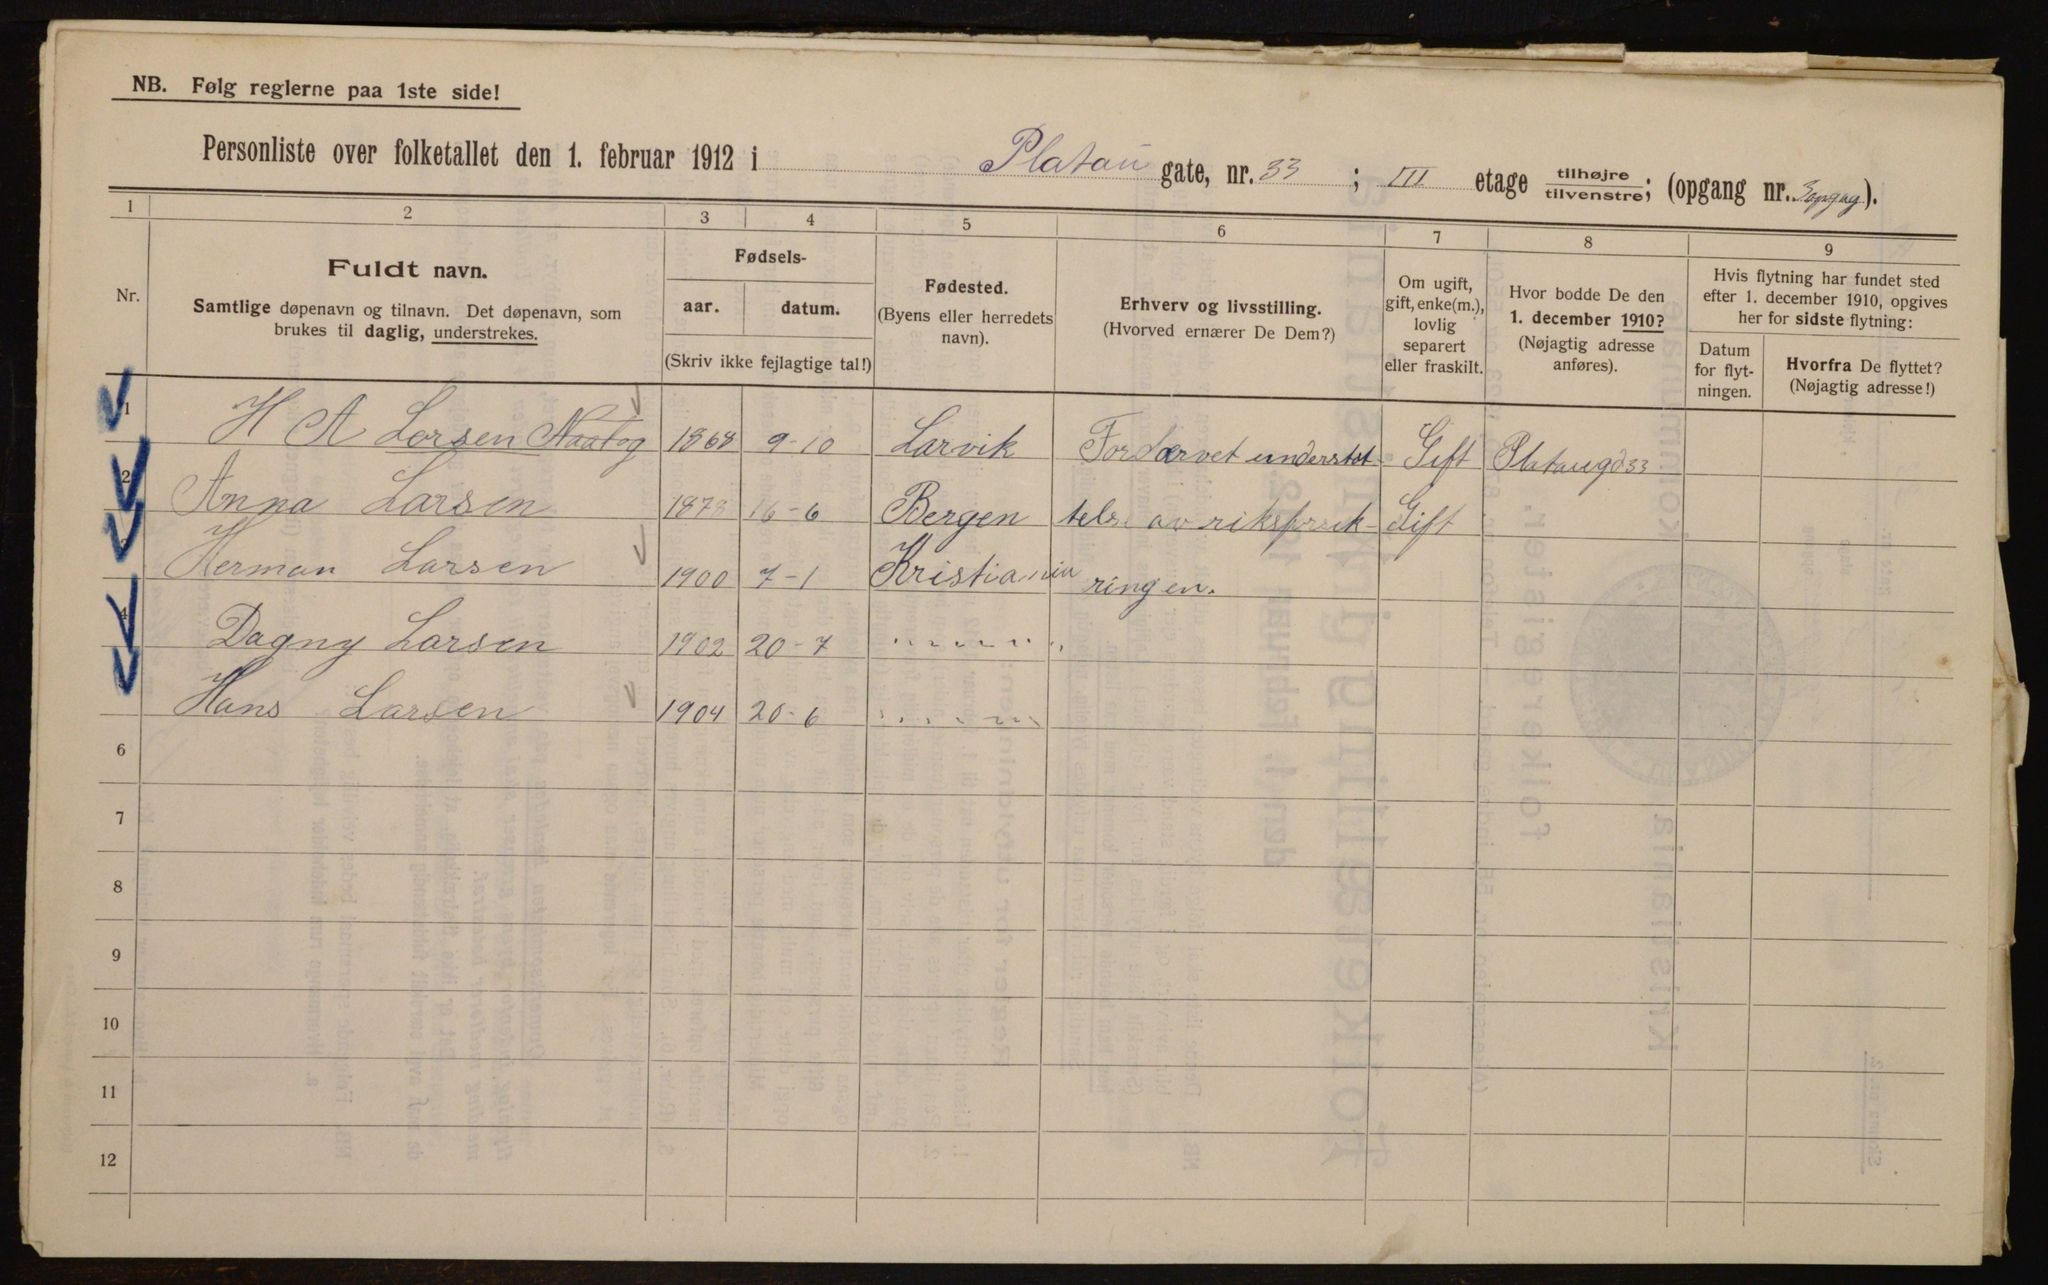 NB. Følg reglerne paa 1ste side!
Personliste over folketallet den 1. februar 1912 i Platou gate, nr. 33; III etage tilhøjre tilvenstre; (opgang nr. 3 opgag).
1 2 3 4 5 6 7 8 9
Nr.
Fuldt navn.
Samtlige døpenavn og tilnavn. Det døpenavn, som
brukes til daglig, understrekes.
Fødsels-
aar. datum.
(Skriv ikke fejlagtige tal!)
Fødested.
(Byens eller herredets
navn).
Erhverv og livsstilling.
(Hvorved ernærer De Dem?)
Om ugift,
gift, enke(m.),
lovlig
separert
eller fraskilt.
Hvor bodde De den
1. december 1910?
(Nøjagtig adresse
anføres).
Hvis flytning har fundet sted
efter 1. december 1910, opgives
her for sidste flytning:
Datum
for flyt-
ningen.
Hvorfra De flyttet?
(Nøjagtig adresse!)
1 H A Larsen 1868 9-10 Larvik Fordærvet understøt- Gift Platougd 33
2 Anna Larsen 1878 16-6 Bergen telse av riksforsik- Gift
3 Herman Larsen 1900 7-1 Kristiania ringen.
4 Dagny Larsen 1902 20-7 " " " " "
5 Hans Larsen 1904 20-6 " " " " "
6
7
8
9
10
11
12